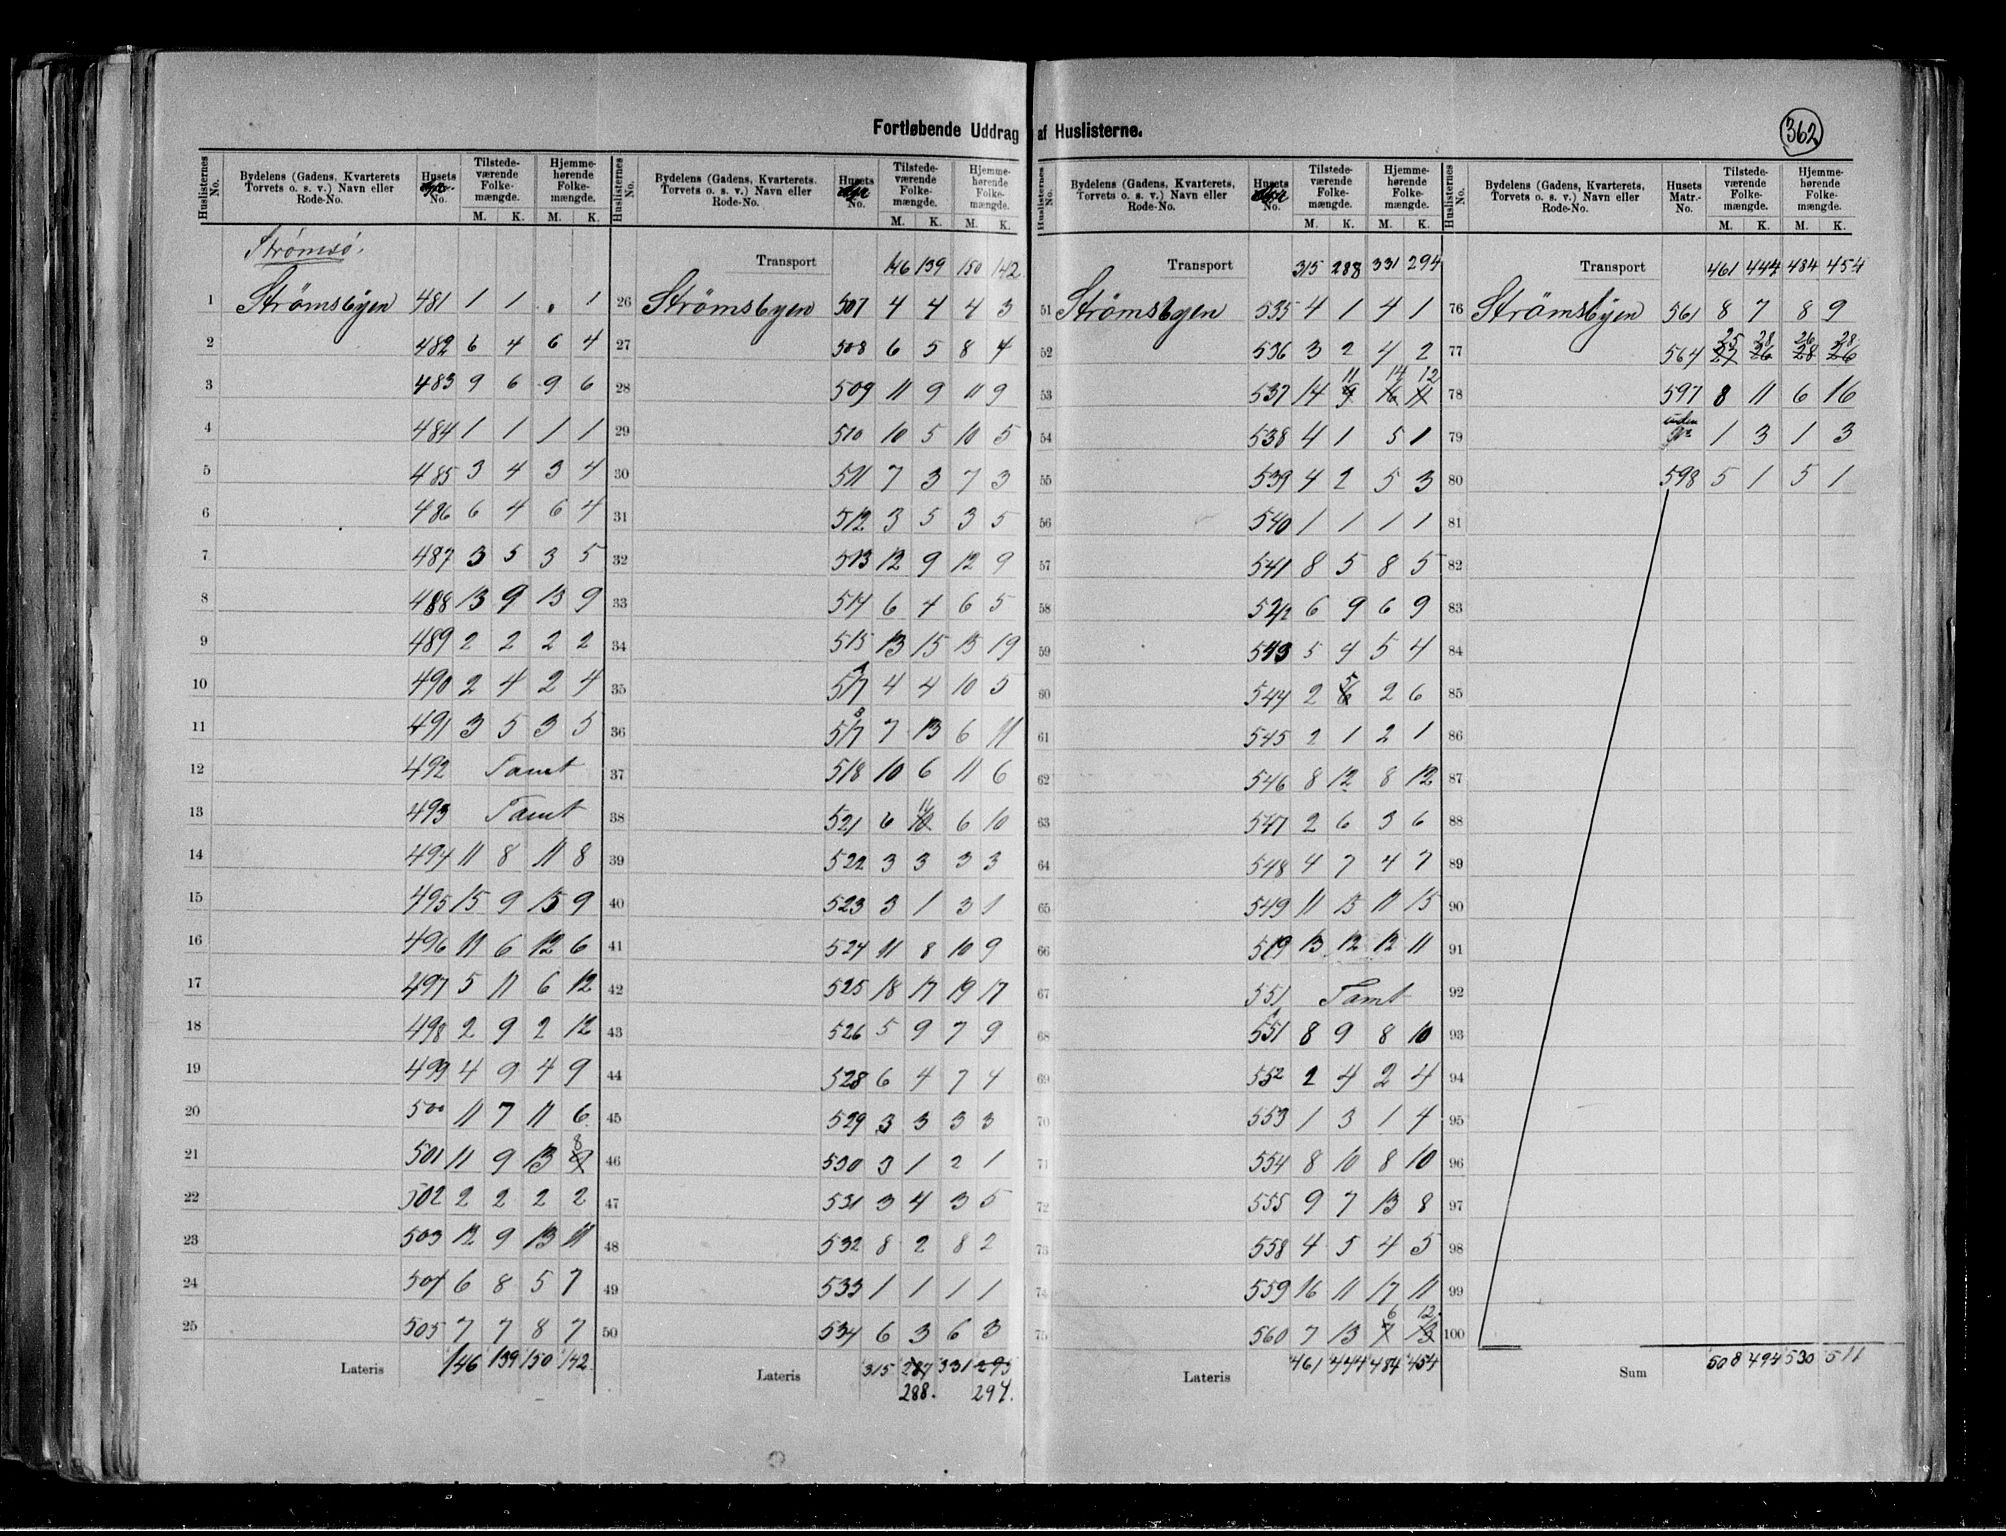 Fortløbende Uddrag af Huslisterne.
362
Huslisternes No. Bydelens (Gadens, Kvarterets Torvets o. s. v.) Navn eller Rode-No. Husets No. Tilstedeværende Folkemængde. M. K. Hjemmehørende Folkemængde. M. K.
Strømsø.
1 Strømsbyen 481 1 1 . 1
2 482 6 4 6 4
3 483 9 6 9 6
4 484 1 1 1 1
5 485 3 4 3 4
6 486 6 4 6 4
7 487 3 5 3 5
8 488 13 9 13 9
9 489 2 2 2 2
10 490 2 4 2 4
11 491 3 5 3 5
12 492 Tomt
13 493 Tomt
14 494 11 8 11 8
15 495 15 9 15 9
16 496 11 6 12 6
17 497 5 11 6 12
18 498 2 9 2 12
19 499 4 9 4 9
20 500 11 7 11 6
21 501 11 9 13 8
22 502 2 2 2 2
23 503 12 9 13 11
24 504 6 8 5 7
25 505 7 7 8 7
Lateris 146 139 150 142
Huslisternes No. Bydelens (Gadens, Kvarterets. Torvets o. s. v.) Navn eller Rode-No. Husets No. Tilstedeværende Folkemængde. M. K. Hjemmehørende Folkemængde. M. K.
Transport 146 139 150 142
26 Strømsbyen 507 4 4 4 3
27 508 6 5 8 4
28 509 11 9 11 9
29 510 10 5 10 5
30 511 7 3 7 3
31 512 3 5 3 5
32 513 12 9 12 9
33 514 6 4 6 5
34 515 13 15 15 19
35 517 A 4 4 10 5
36 517 B 7 13 6 11
37 518 10 6 11 6
38 521 6 11 10 6 10
39 522 3 3 3 3
40 523 3 1 3 1
41 524 11 8 10 9
42 525 18 17 19 17
43 526 5 9 7 9
44 528 6 4 7 4
45 529 3 3 3 3
46 530 3 1 2 1
47 531 3 4 3 5
48 532 8 2 8 2
49 533 1 1 1 1
50 534 6 3 6 3
Lateris 315 287 331 293
288. 294.
Huslisternes No. Bydelens (Gadens, Kvarterets, Torvets o. s. v.) Navn eller Rode-No. Husets No. Tilstedeværende Folkemængde. M. K. Hjemmehørende Folkemængde. M. K.
Transport 315 288 331 294
51 Strømsbyen 535 4 1 4 1
52 536 3 2 4 2
53 537 14 11 9 14 16 12 11
54 538 4 1 5 1
55 539 4 2 5 3
56 540 1 1 1 1
57 541 8 5 8 5
58 542 6 9 6 9
59 543 5 4 5 4
60 544 2 5 6 2 6
61 545 2 1 2 1
62 546 8 12 8 12
63 547 2 6 3 6
64 548 4 7 4 7
65 549 11 15 11 15
66 519 13 12 12 11
67 551 Tomt
68 551 8 9 8 10
69 552 2 4 2 4
70 553 1 3 1 4
71 554 8 10 8 10
72 555 9 7 13 8
73 558 4 5 4 5
74 559 16 11 17 11
75 560 7 13 6 7 12 13
Lateris 461 444 484 454
Huslisternes No. Bydelens (Gadens, Kvarterets, Torvets o. s. v.) Navn eller Rode-No. Husets Matr.-No. Tilstedeværende Folkemængde. M. K. Hjemmehørende Folkemængde. M. K.
Transport 461 444 484 454
76 Strømsbyen 561 8 7 8 9
77 564 25 27 28 26 26 28 28 26
78 597 8 11 6 16
79 uden No 1 3 1 3
80 598 5 1 5 1
81
82
83
84
85
86
87
88
89
90
91
92
93
94
95
96
97
98
99
100
Sum 508 494 530 511